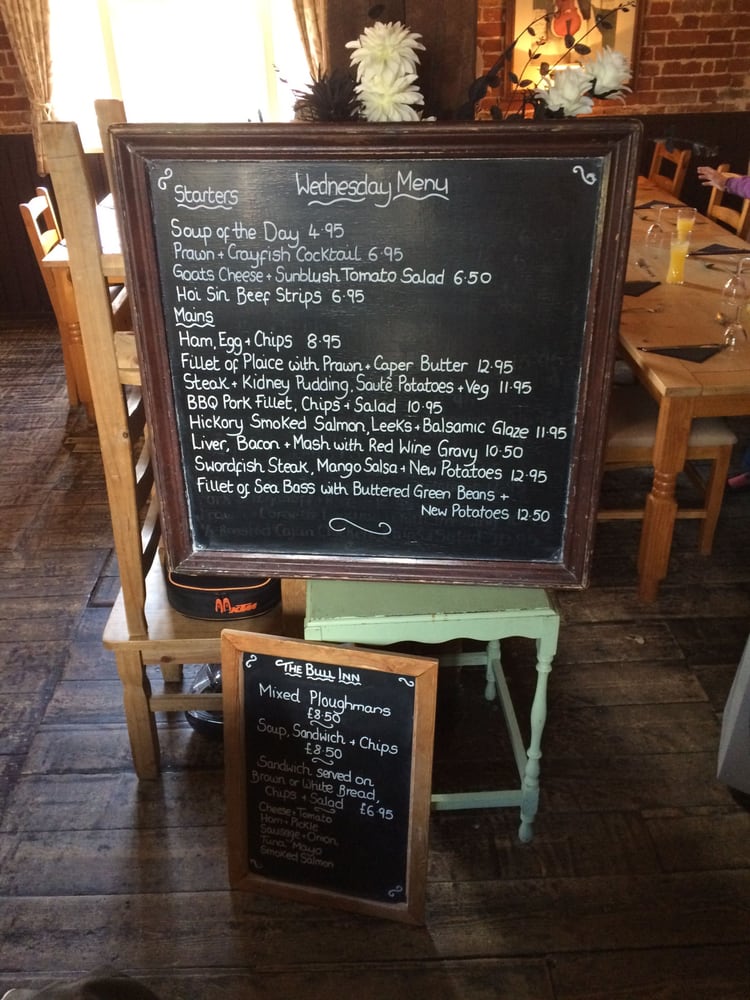 Wednesday Menu
Starters
Soup of the Day 4.95
Prawn + Crayfish Cocktail 6.95
Goats Cheese + Sunblush Tomato Salad 6.50
Hoi Sin Beef Strips 6.95
Mains
Ham, Egg + Chips 8.95
Fillet of Plaice with Prawn + Caper Butter 12.95
Steak + Kidney Pudding, Sauté Potatoes + Veg 11.95
BBQ Pork Fillet, Chips + Salad 10.95
Hickory Smoked Salmon, Leeks + Balsamic Glaze 11.95
Liver, Bacon + Mash with Red Wine Gravy 10.50
Swordfish Steak, Mango Salsa + New Potatoes 12.95
Fillet of Sea Bass with Buttered Green Beans +
New Potatoes 12.50
THE BULL INN
Mixed Ploughmans
£8.50
Soup, Sandwich + Chips
£8.50
Sandwich served on
Brown or White Bread,
Chips + Salad £6.95
Cheese + Tomato
Ham + Pickle
Sausage + Onion,
Tuna, Mayo
Smoked Salmon